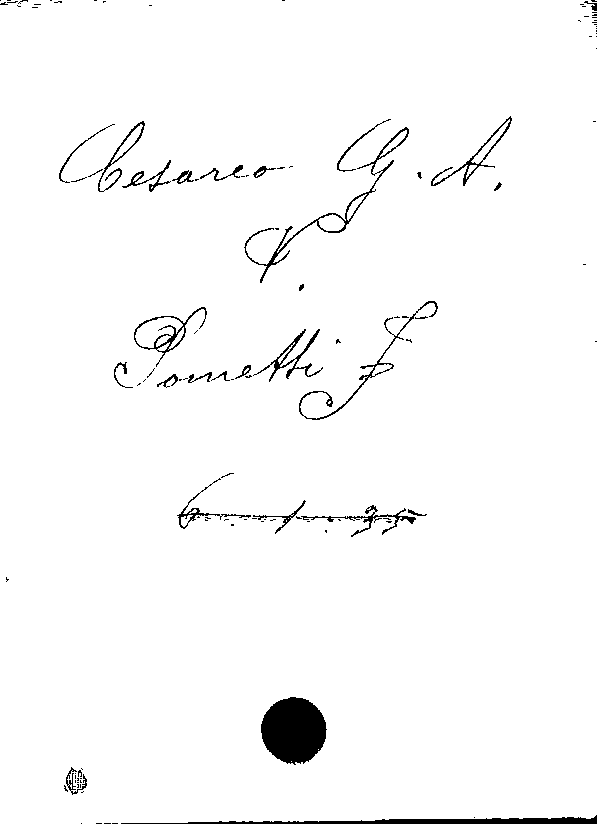 Cesareo G. A.
V.
Pometti F
6. 1. 35